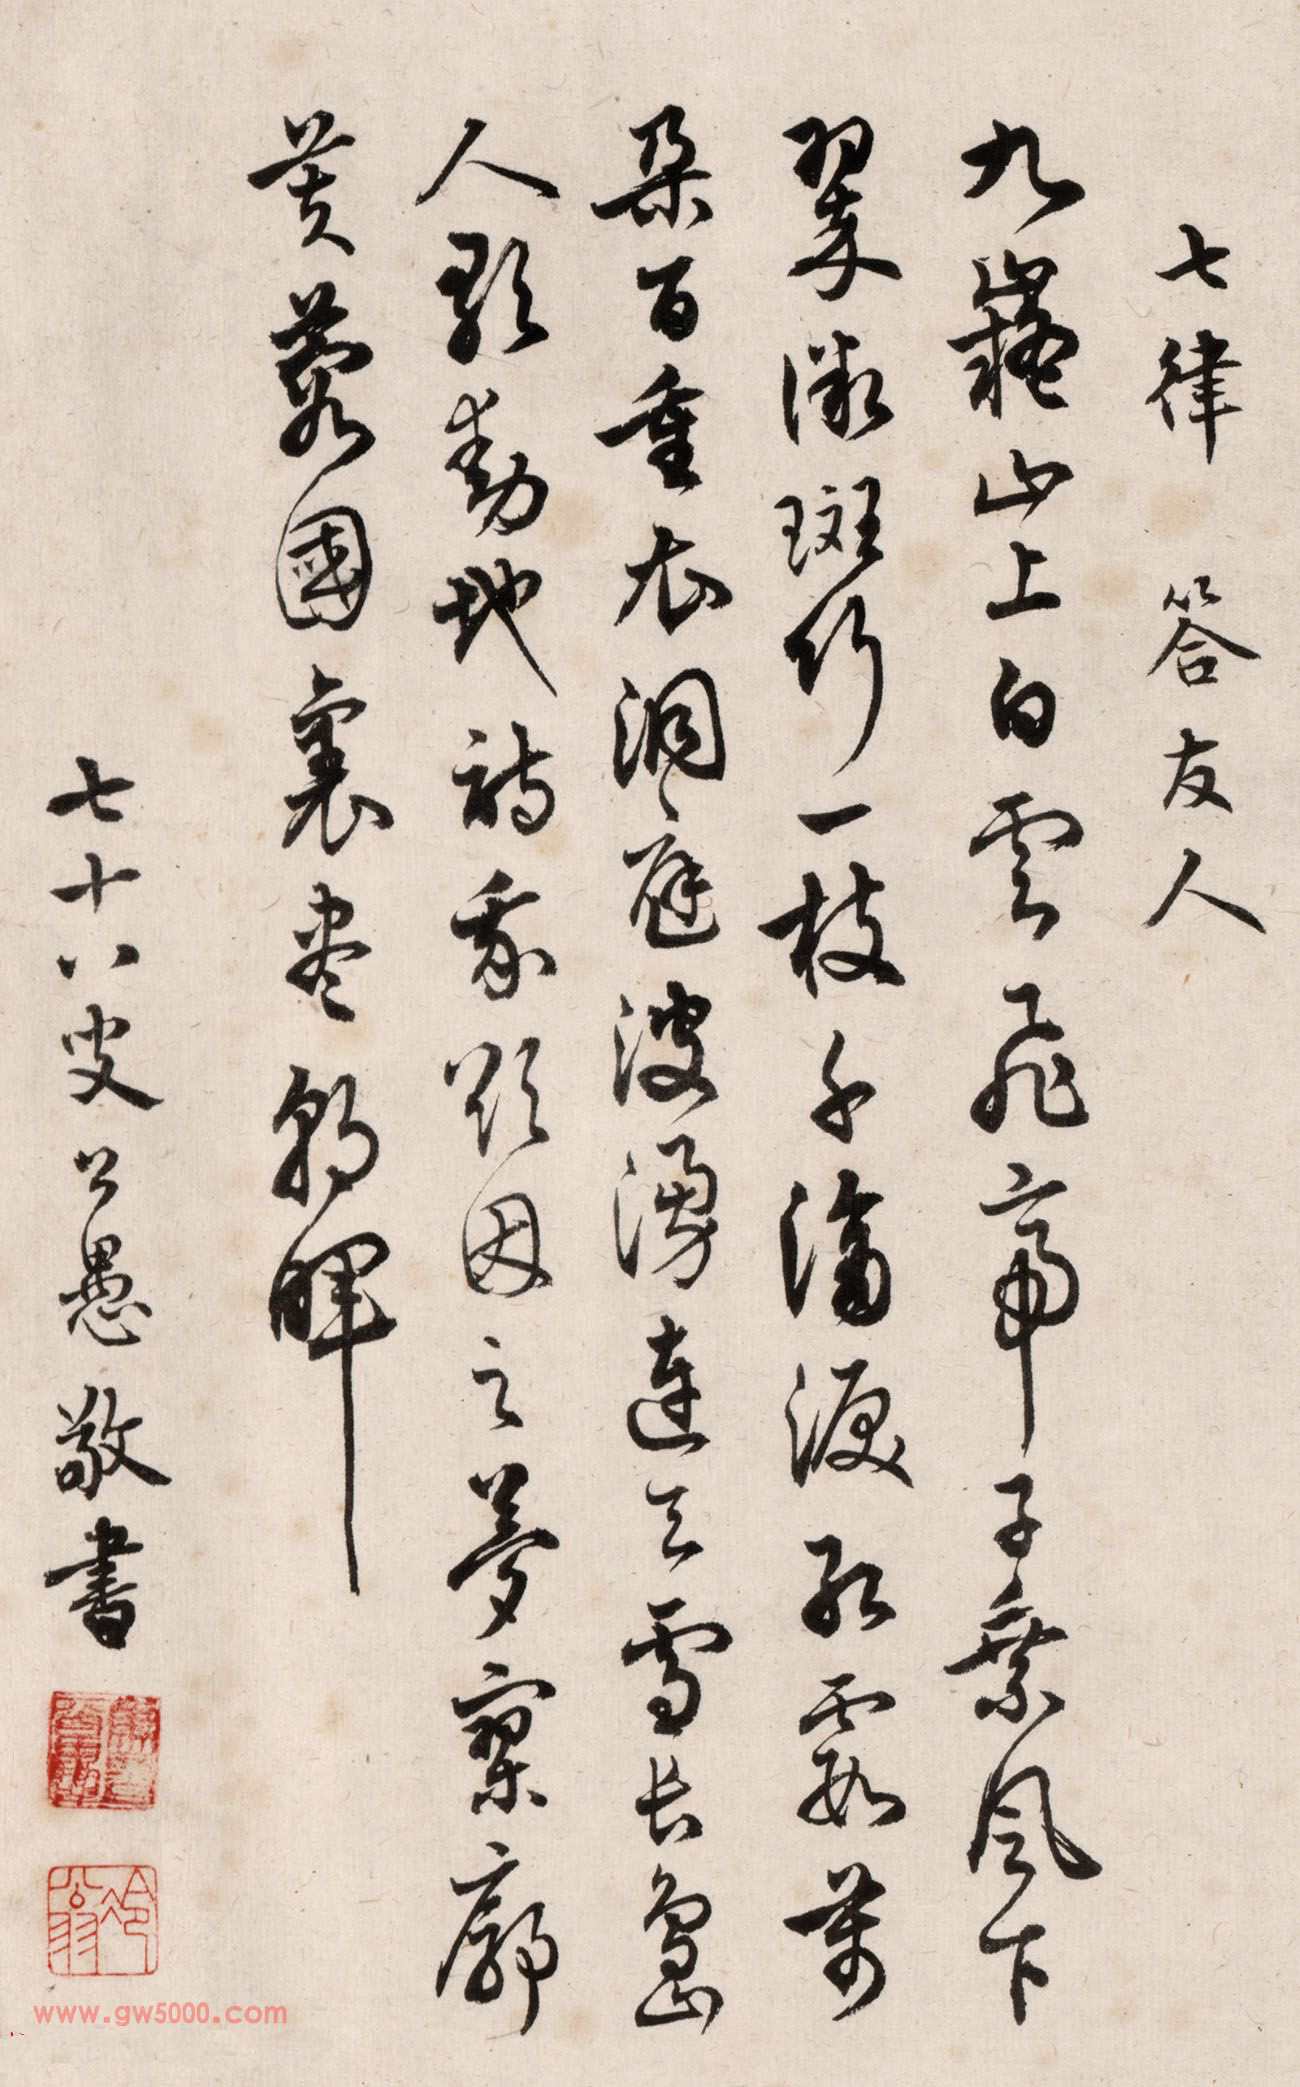 七律 答友人
九嶷山上白雲飛帝子乘風下
翠微斑竹一枝千滴淚紅霞萬
朵百重衣洞庭波湧連天雪長島
人歌動地詩我欲因之夢寥廓
芙蓉國裏盡朝暉
七十八叟公愚敬書
冷翁
www.gw5000.com